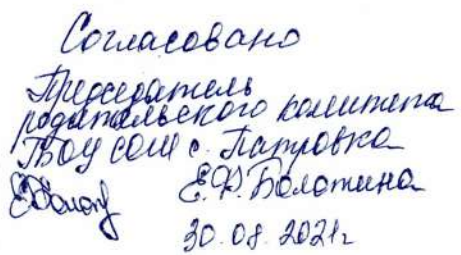 Согласовано
Председатель
родительского комитета
ГБОУ СОШ с. Патровка
Е.Ф. Болотина
30.08.2021г